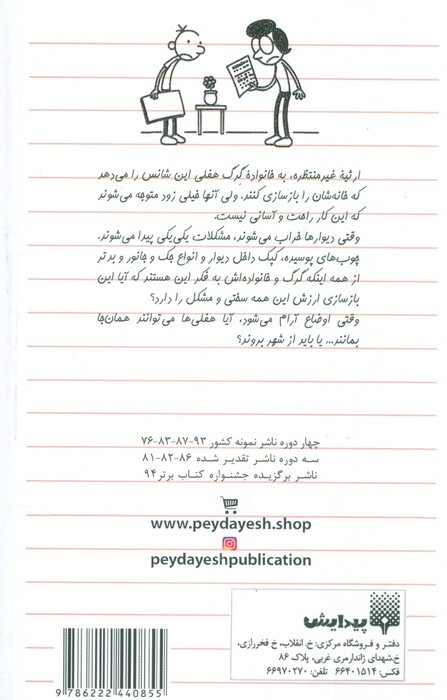 ارثیهٔ غیرمنتظره، به خانوادهٔ گرگ هفلی این شانس را می‌دهد
که خانه‌شان را بازسازی کنند. ولی آنها خیلی زود متوجه می‌شوند
که این کار راحت و آسانی نیست.
وقتی دیوارها خراب می‌شوند، مشکلات یکی‌یکی پیدا می‌شوند.
چوب‌های پوسیده، کپک داخل دیوار و انواع جک و جانور و بدتر
از همه اینکه گرگ و خانواده‌اش به فکر این هستند که آیا این
بازسازی ارزش این همه سختی و مشکل را دارد؟
وقتی اوضاع آرام می‌شود، آیا هفلی‌ها می‌توانند همان‌جا
بمانند... یا باید از شهر بروند؟
چهار دوره ناشر نمونه کشور ۹۳-۸۷-۸۳-۷۶
سه دوره ناشر تقدیر شده ۸۶-۸۲-۸۱
ناشر برگزیده جشنواره کتاب برتر ۹۴
www.peydayesh.shop
peydayeshpublication
پیدایش
دفتر و فروشگاه مرکزی: خ. انقلاب، خ فخررازی،
خ شهدای ژاندارمری غربی، پلاک ۸۶
فکس: ۶۶۴۰۱۵۱۴ تلفن: ۶۶۹۷۰۲۷۰
9 786222 440855